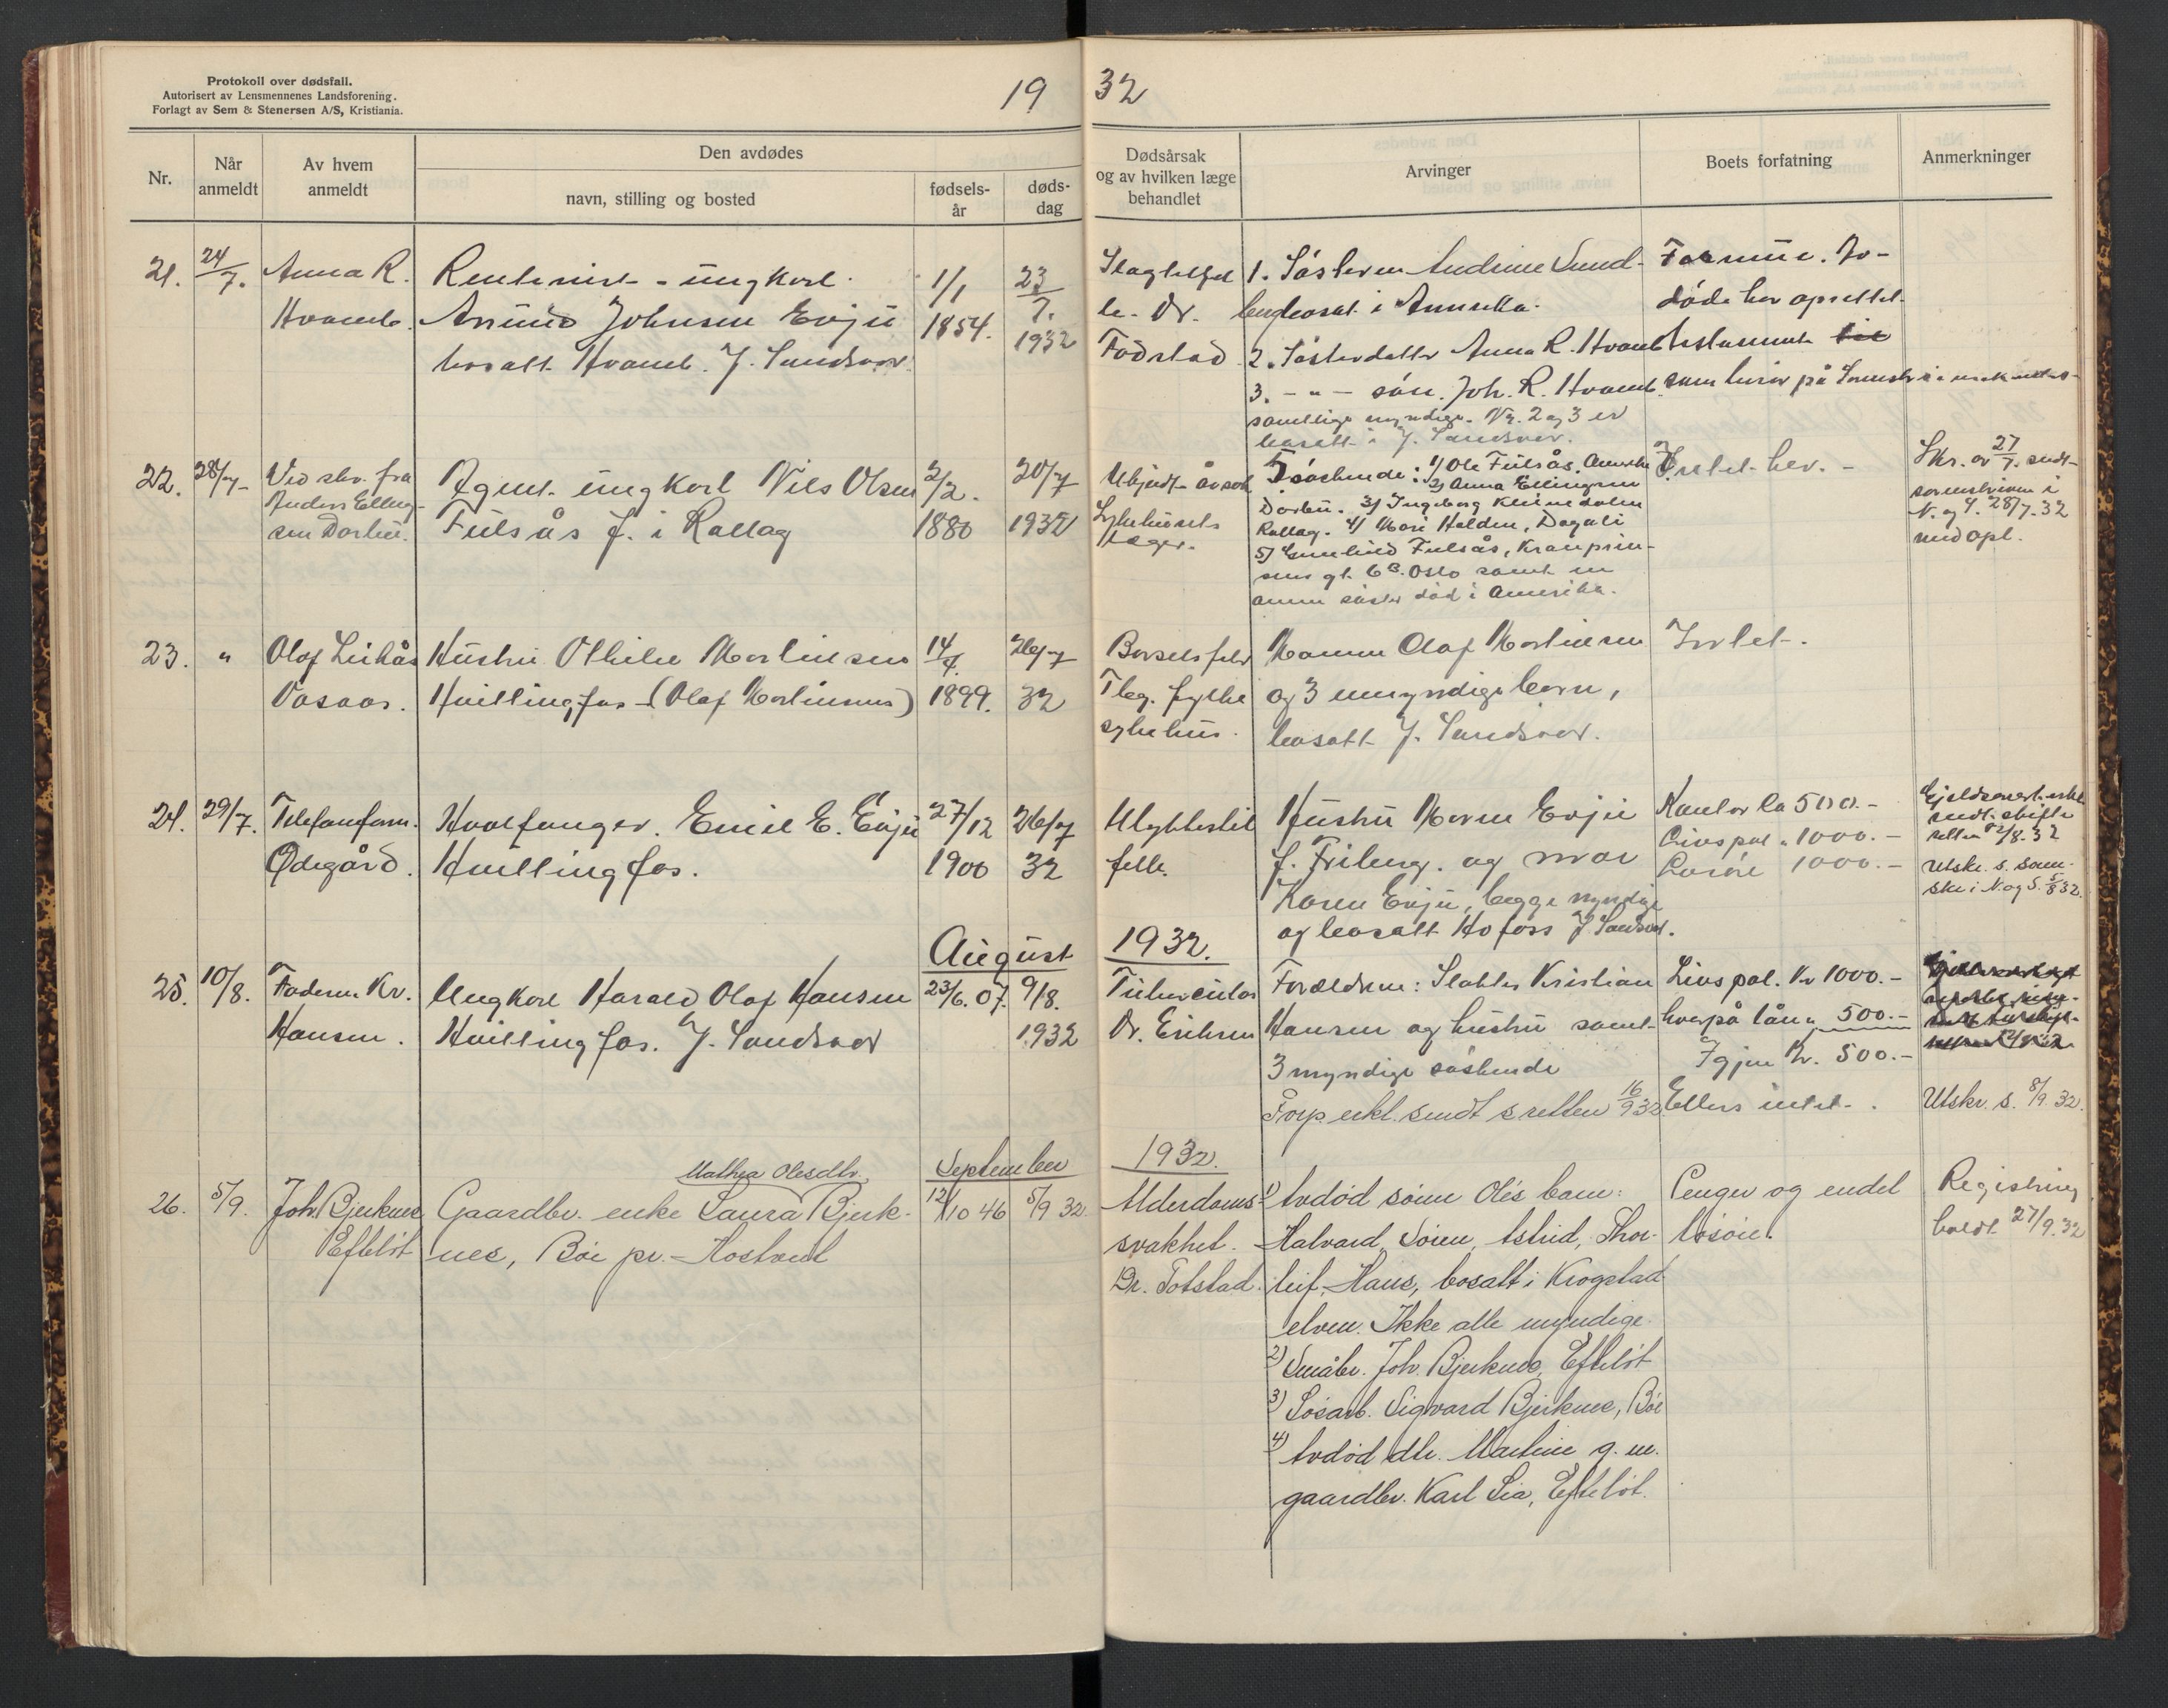 Protokoll over dødsfall.
Autorisert av Lensmennenes Landsforening.
Forlagt av Sem & Stenersen A/S, Kristiania.
19 32
Nr.
Når anmeldt
Av hvem anmeldt
Den avdødes
navn, stilling og bosted
fødsels-år
døds-dag
Dødsårsak og av hvilken læge behandlet
Arvinger
Boets forfatning
Anmerkninger
21. 24/7. Anna R. Hvamb.
Rentenist - ungkarl
Amund Johnsen Evju
bosatt Hvamb. Y. Sandsvær
1/1 1854. 23/7. 1932
Slagtilfel
le. Dr.
Fodstad
1. Søsteren Andrine Lund-
bosat i Amerika.
2. Søsterdatter Anna R. Hvamb
3. - " - søn. Joh. R. Hvamb.
samtlige myndige. Nr. 2 og 3 er
bosatt i Y. Sandsvær.
Formue. Av-
døde har oprettet
testamente
som beror på
22. 28/7 Ved skr. fra
Anders Elling-
sen Dorbu.
Agent. ungkarl Nils Olsen
Fulsås f. i Rollag
2/2. 1880 20/7 1932
Ukjendt årsak
Sykehusets
læger.
Søskende: 1) Ole Fulsås, Amerika
2) Anna Ellingsen
Dorbu. 3) Ingeborg Kleivedalen
Rollag. 4) Mari Halden, Dagali
5) Gunhild Fulsås, Kronprin-
sens gt. 6B. Oslo samt en
annen søster død i Amerika.
Intet her. -
Skr. av 27/7. sendt
sorenskriveren i
N. og S. 28/7-32
med opl.
23. " Olaf Leikås
Vasaas.
Hustru Othilie Martinsen
Hvillingfos (Olaf Martinsens)
14/4. 1899. 26/7 32
Barselsfeber
Kbg. fylke
sykehus.
Mannen Olaf Martinsen
og 3 umyndige barn,
bosatt Y. Sandsvær.
Intet.
24. 29/7. Telefonform.
Ødegård.
Hvalfanger. Emil E. Evju
Hvillingfos.
27/12 1900 26/7 32
Ulykkestil
felle.
Hustru Maren Evju
f. Friberg. og mor
Karen Evju, begge myndige
og bosatt Hofoss Y. Sandsvær.
Kontor ca 500.-
Livspol. " 1000.-
Løsøre 1000.-
sendt skifte
retten 12/8-32
Utskr. s. soren-
skr. i N. og S. 5/8 32.
August 1932.
25. 10/8. Faderen Kr.
Hansen.
Ungkarl Harald Olaf Hansen
Hvillingfos. Y. Sandsvær
23/6. 07. 9/8. 1932
Tuberculos
Dr. Eriksen
Forældrene: Slakter Kristian
Hansen og hustru samt
3 myndige søskende
Forp. erkl. sendt s.retten 16/9 32
Livspol. Kr 1000.-
hvorpå lån " 500.-
Igjen Kr. 500.-
Ellers intet.
Utskr. s. 8/9. 32.
September 1932.
26. 5/9. Joh. Bjerknes
Efteløt
Mathea Olesdtr.
Gaardbr. enke Laura Bjerk-
nes, Bøe pr. Hostvedt
12/10 46 5/9 32
Alderdoms-
svakhet.
Dr. Fotstad.
1) Avdød sønn Oles barn:
Halvard, Søren, Astrid, Thor-
leif, Hans, bosatt i Krogstad
elven. Ikke alle myndige.
2) Småbr. Joh. Bjerknes, Efteløt
3) Løsarb. Sigvard Bjerknes, Bøe
4) Avdød dtr. Martine g. m.
gaardbr. Karl Lia, Efteløt.
Penger og endel
løsøre.
Registrering
holdt 27/9. 32